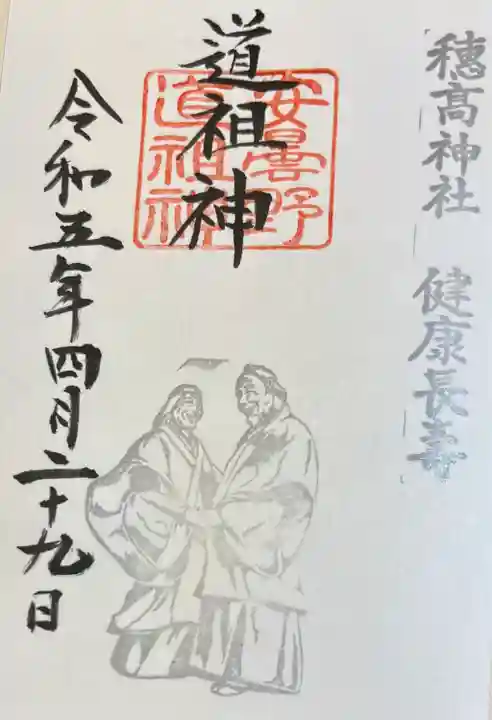 穂髙神社 健康長寿
道祖神
安曇野
道祖神
令和五年四月二十九日